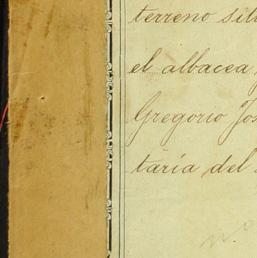 terreno sit
el albacea
Gregorio Jos
taría del